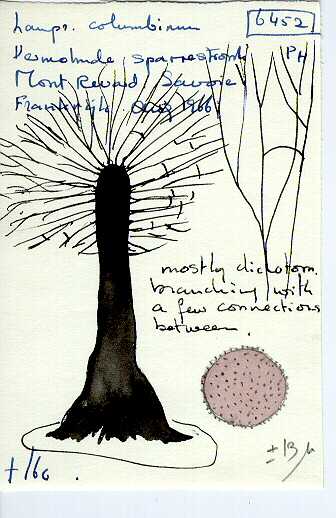 Lampr. columbinum
6452
Vermolmde sparrestronk
PH
Mont Revard, Savoie,
Frankrijk Aug. 1966
mostly dichotom.
branching with
a few connections
between.
± 13 µ
± 16c.